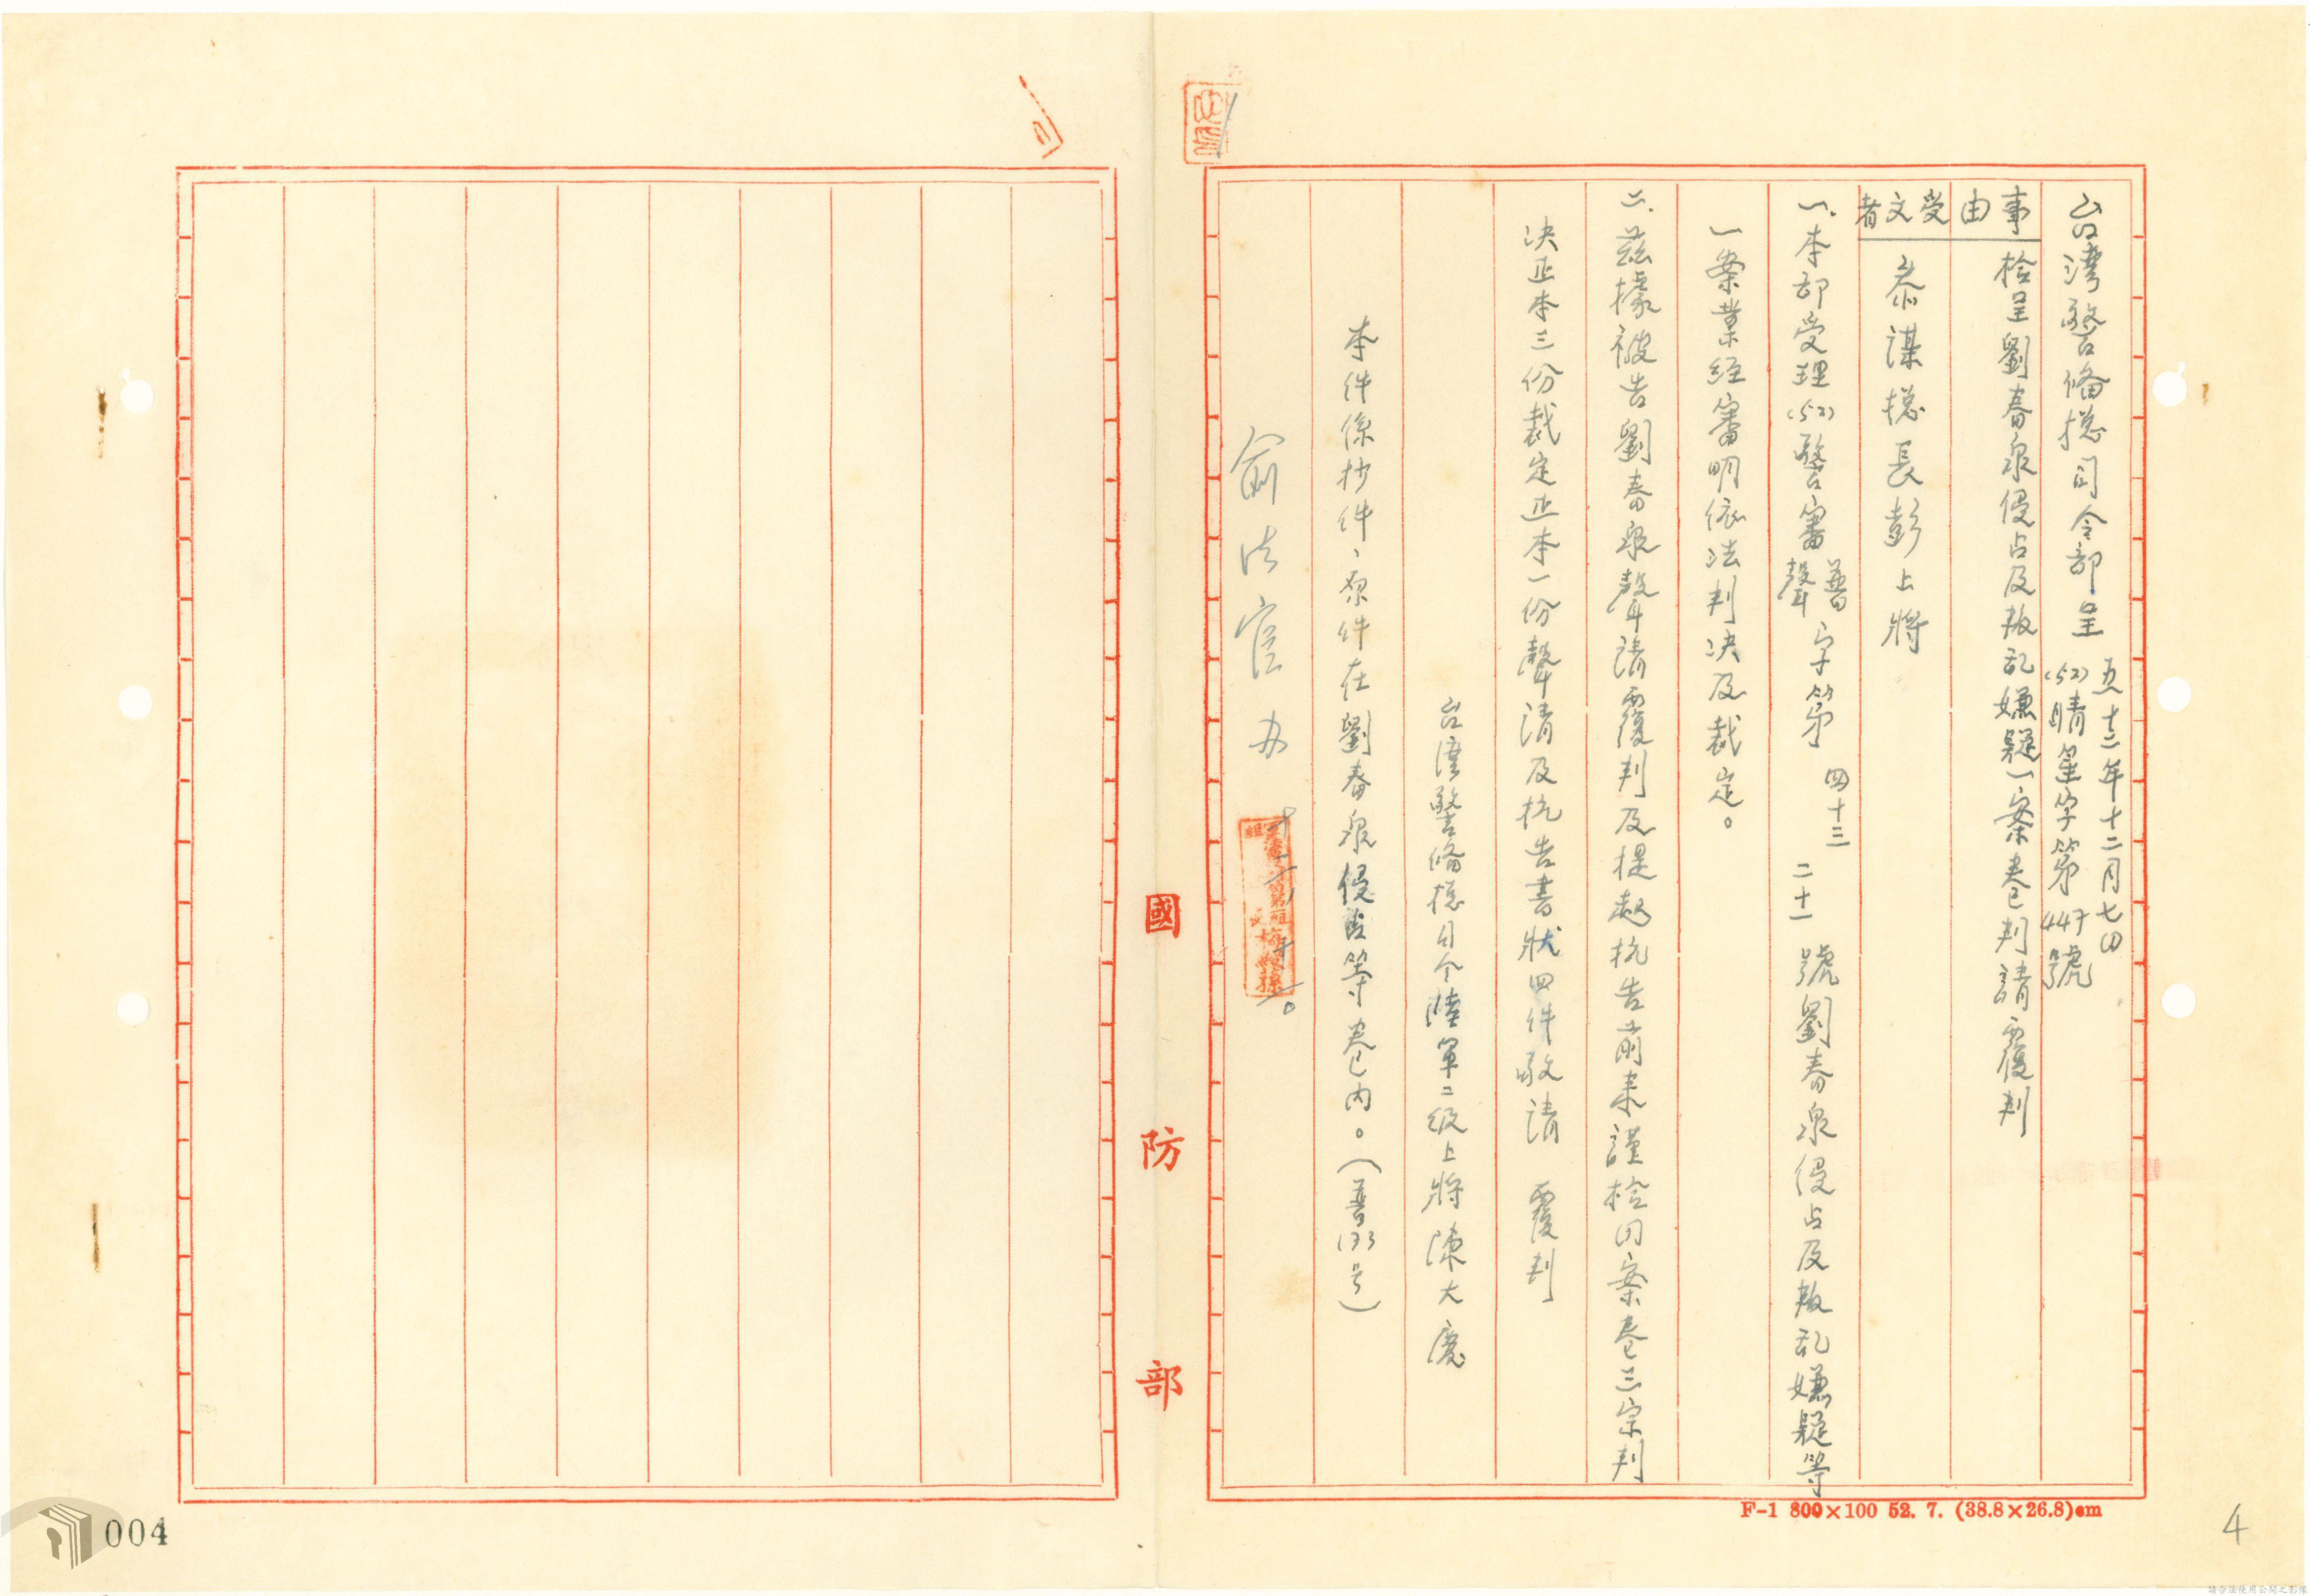 台灣警备捴司令部呈
五十二年十二月七日
(52)晴星字第447號
事由
檢呈劉春泉侵占及叛乱嫌疑一案卷判請覆判
受文者
参謀捴長彭上將
一.本部受理(52)警審普聲字第四十三二十一號劉春泉侵占及叛乱嫌疑等
一案業経審明依法判决及裁定。
二.茲據被告劉春泉聲請覆判及提起抗告前来謹檢同案卷三宗判
决正本三份裁定正本一份聲請及抗告書狀四件敬請 覆判
台湾警備捴司令陸軍二級上將陳大慶
本件係抄件、原件在劉春泉侵占等卷内。(普133号)
俞法官办
十二、十、
國防部
F-1 800×100 52. 7. (38.8×26.8)cm
4
004
請合法使用公開之影像